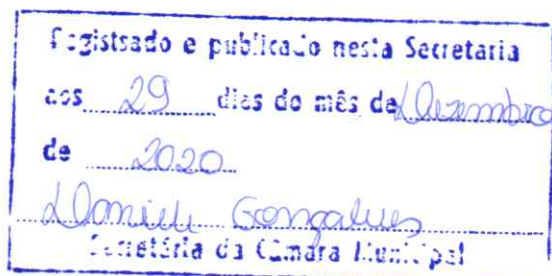 Registrado e publicado nesta Secretaria
aos 29 dias do mês de Dezembro
de 2020
Danieli Gonçalves
Secretária da Câmara Municipal